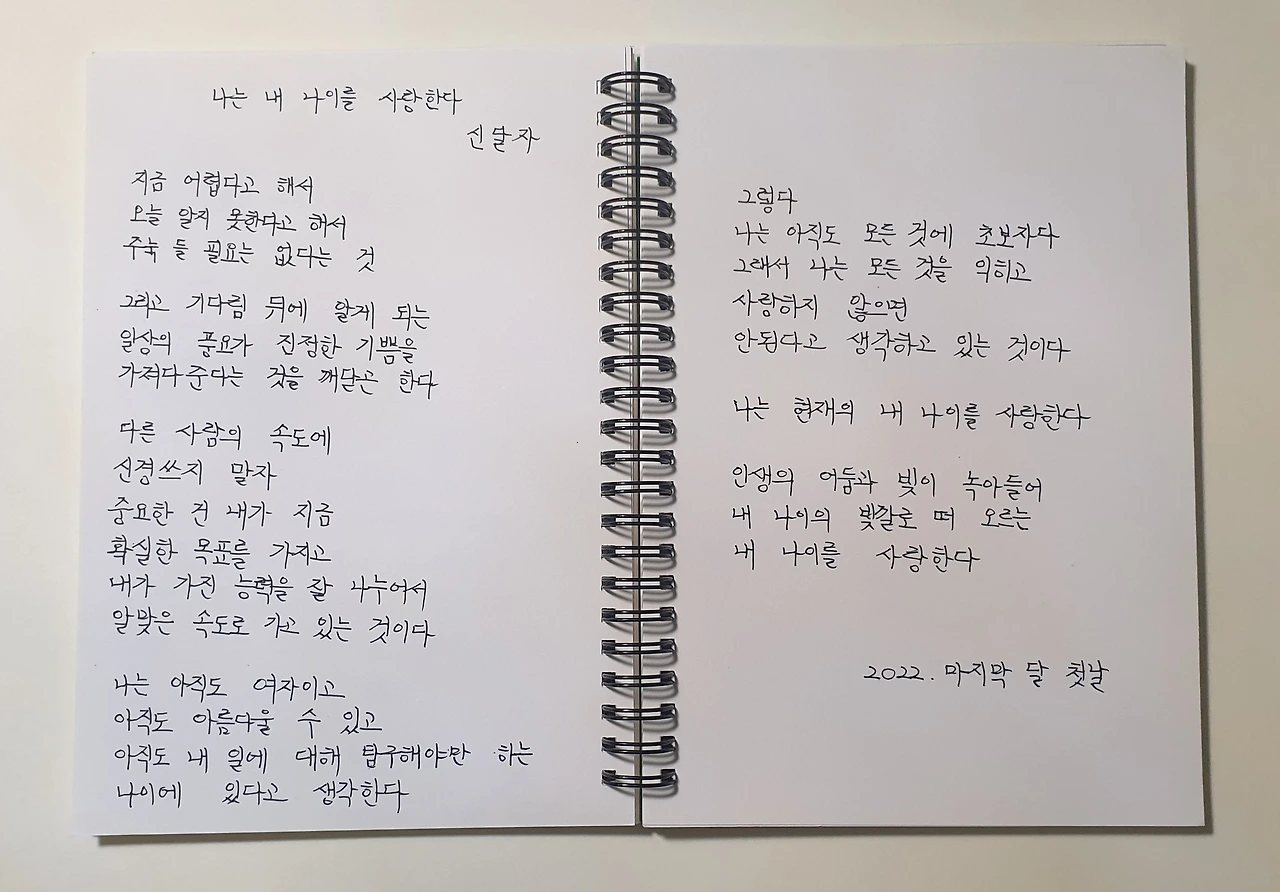 나는 내 나이를 사랑한다
신달자
지금 어렵다고 해서
오늘 알지 못한다고 해서
주눅 들 필요는 없다는 것
그리고 기다림 뒤에 알게 되는
일상의 풍요가 진정한 기쁨을
가져다준다는 것을 깨닫곤 한다
다른 사람의 속도에
신경쓰지 말자
중요한 건 내가 지금
확실한 목표를 가지고
내가 가진 능력을 잘 나누어서
알맞은 속도로 가고 있는 것이다
나는 아직도 여자이고
아직도 아름다울 수 있고
아직도 내 일에 대해 탐구해야만 하는
나이에 있다고 생각한다
그렇다
나는 아직도 모든 것에 초보자다
그래서 나는 모든 것을 익히고
사랑하지 않으면
안된다고 생각하고 있는 것이다
나는 현재의 내 나이를 사랑한다
인생의 어둠과 빛이 녹아들어
내 나이의 빛깔로 떠 오르는
내 나이를 사랑한다
2022. 마지막 달 첫날